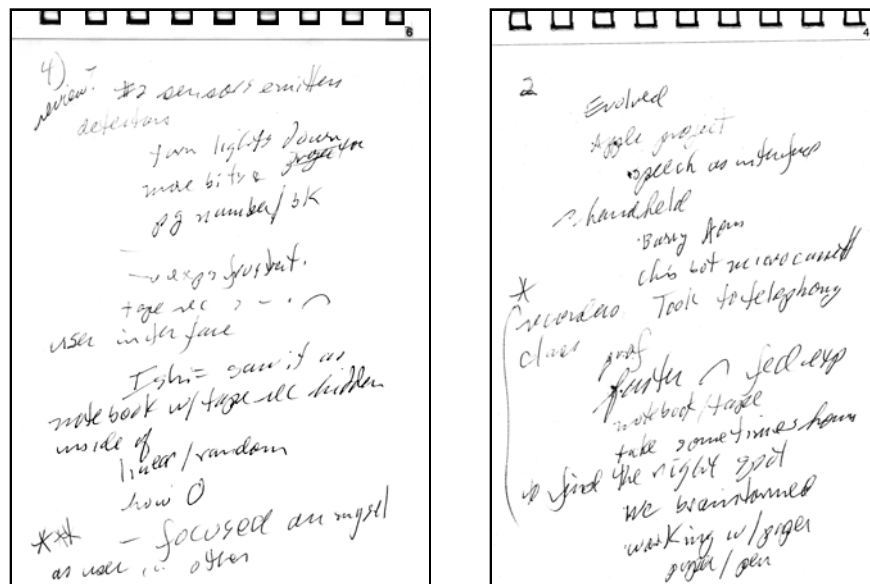 6
4)
review: #2 sensors emitters
detectors
turn lights down
more bits
pg number/bk
exp frustrat.
tape rec
user interface
saw it as
notebook w/ tape rec hidden
inside of
linear/random
how
*** – focused on myself
as user other
4
2
Evolved
Apple project
speech as interface
handheld
Barry
microcassett
* recorders. Took to telephony
class
prof
faster fed exp
notebook/tape
take sometimes hours
to find the right spot
We brainstormed
working w/ pages
paper/pen